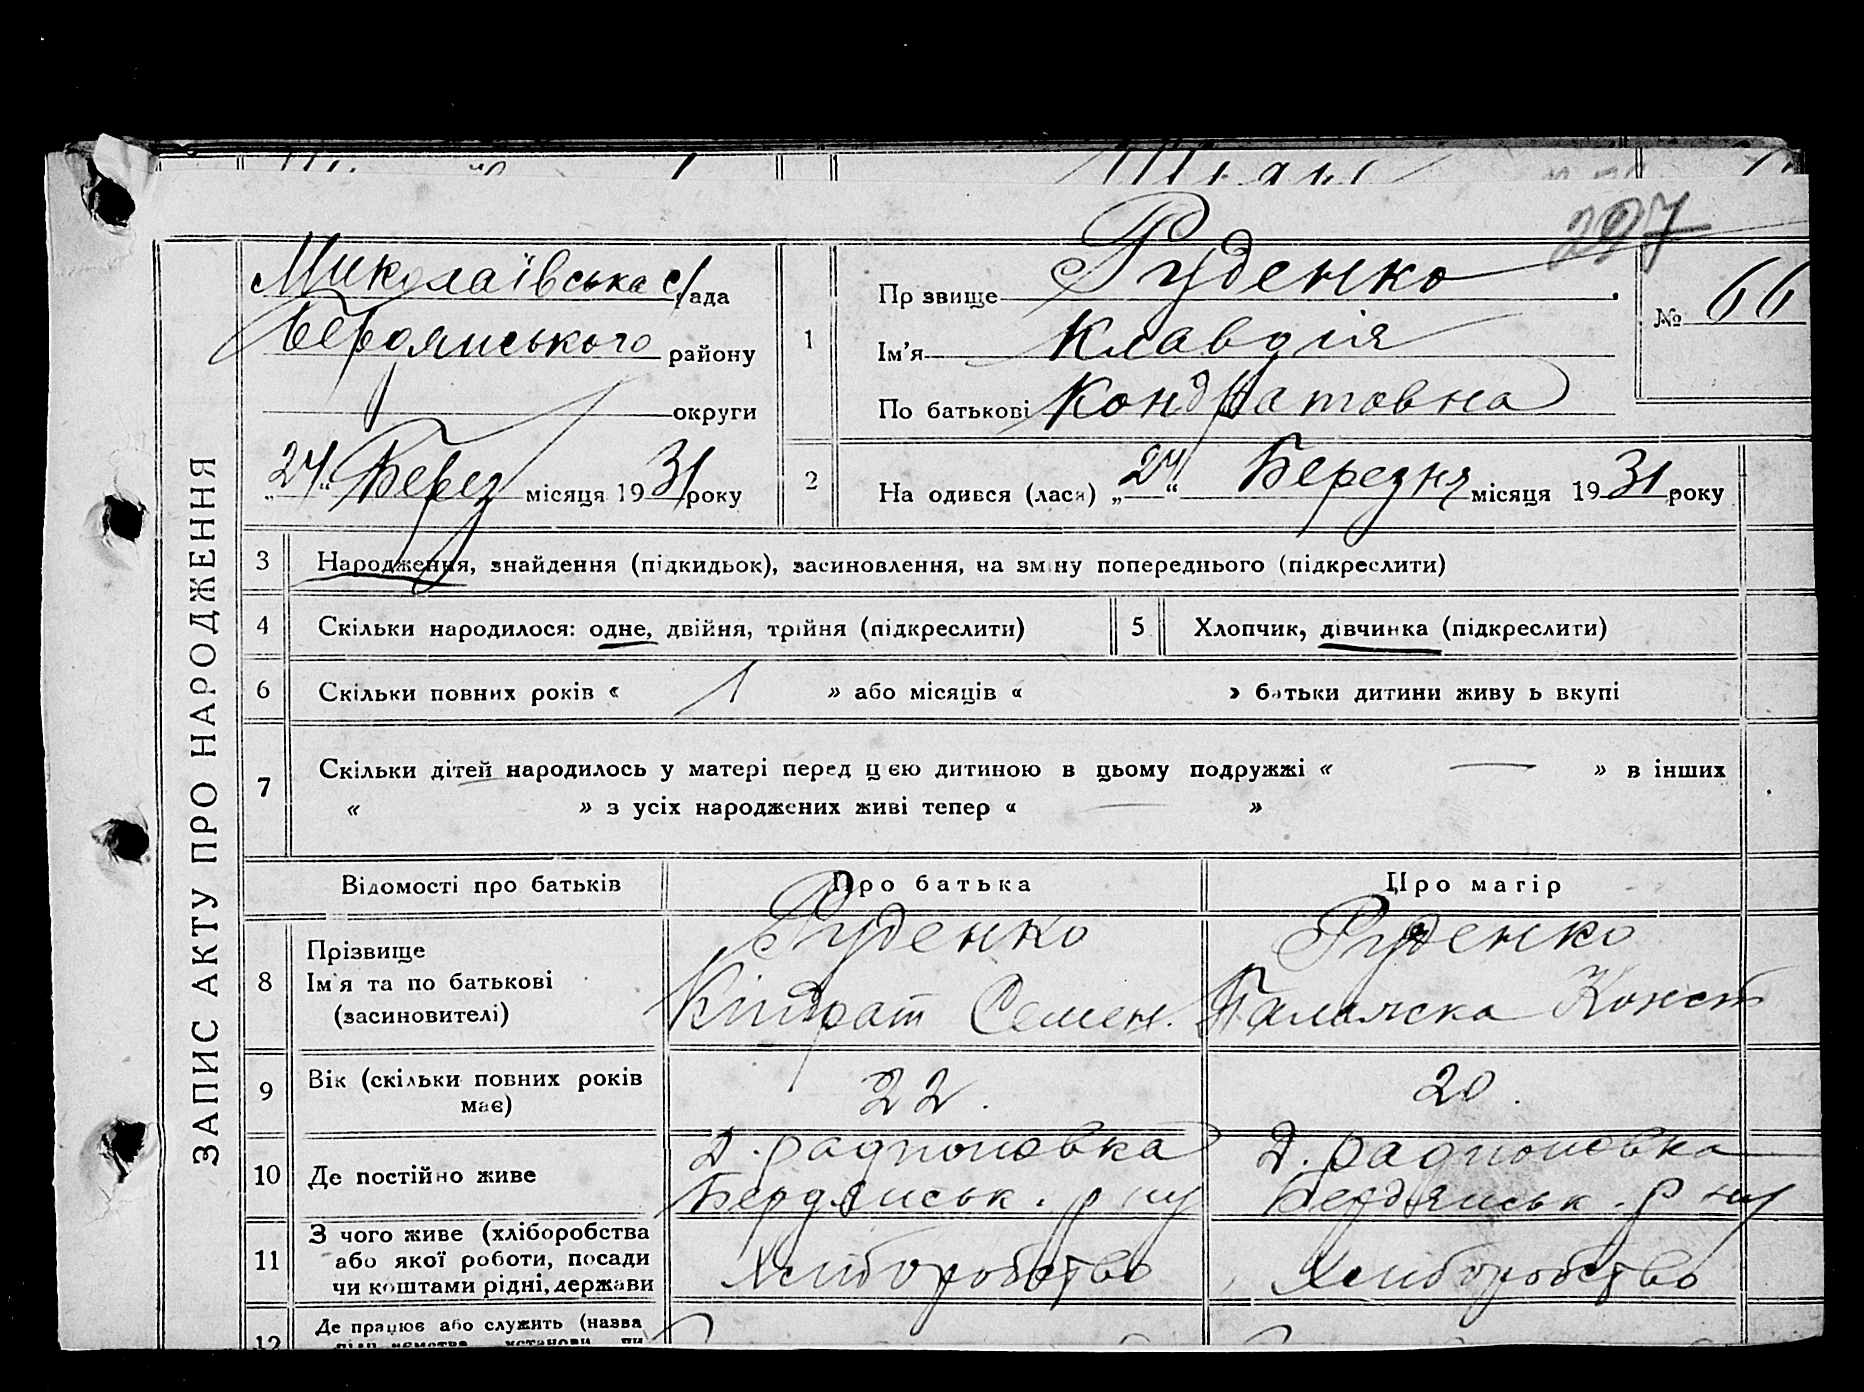 ЗАПИС АКТУ ПРО НАРОДЖЕННЯ
227
Миколаївська с/рада
Бердянського району
округи
„24“ Берез місяця 1931 року
1
Прзвище Руденко
Ім'я Клавдія
По батькові Кондратовна
№ 66
2
На одився (лася) „24“ Березня місяця 1931 року
3 Народження, знайдення (підкидьок), засиновлення, на зміну попереднього (підкреслити)
4 Скільки народилося: одне, двійня, трійня (підкреслити)
5 Хлопчик, дівчинка (підкреслити)
6 Скільки повних років « 1 » або місяців « » батьки дитини живу ь вкупі
7 Скільки дітей народилось у матері перед цєю дитиною в цьому подружжі « — » в інших
« » з усіх народжених живі тепер « — »
Відомості про батьків Про батька Про матір
8 Прізвище
Ім'я та по батькові
(засиновителі)
Руденко
Кіндрат Семен.
Руденко
Палажска Конст
9 Вік (скільки повних років
має)
22.
20.
10 Де постійно живе
Д. радионовка
Бердянськ. р ну
Д. радионовка
Бердянськ. р ну
11 З чого живе (хліборобства
або якої роботи, посади
чи коштами рідні, держави
Хліборобство
Хліборобство
12 Де працює або служить (назва